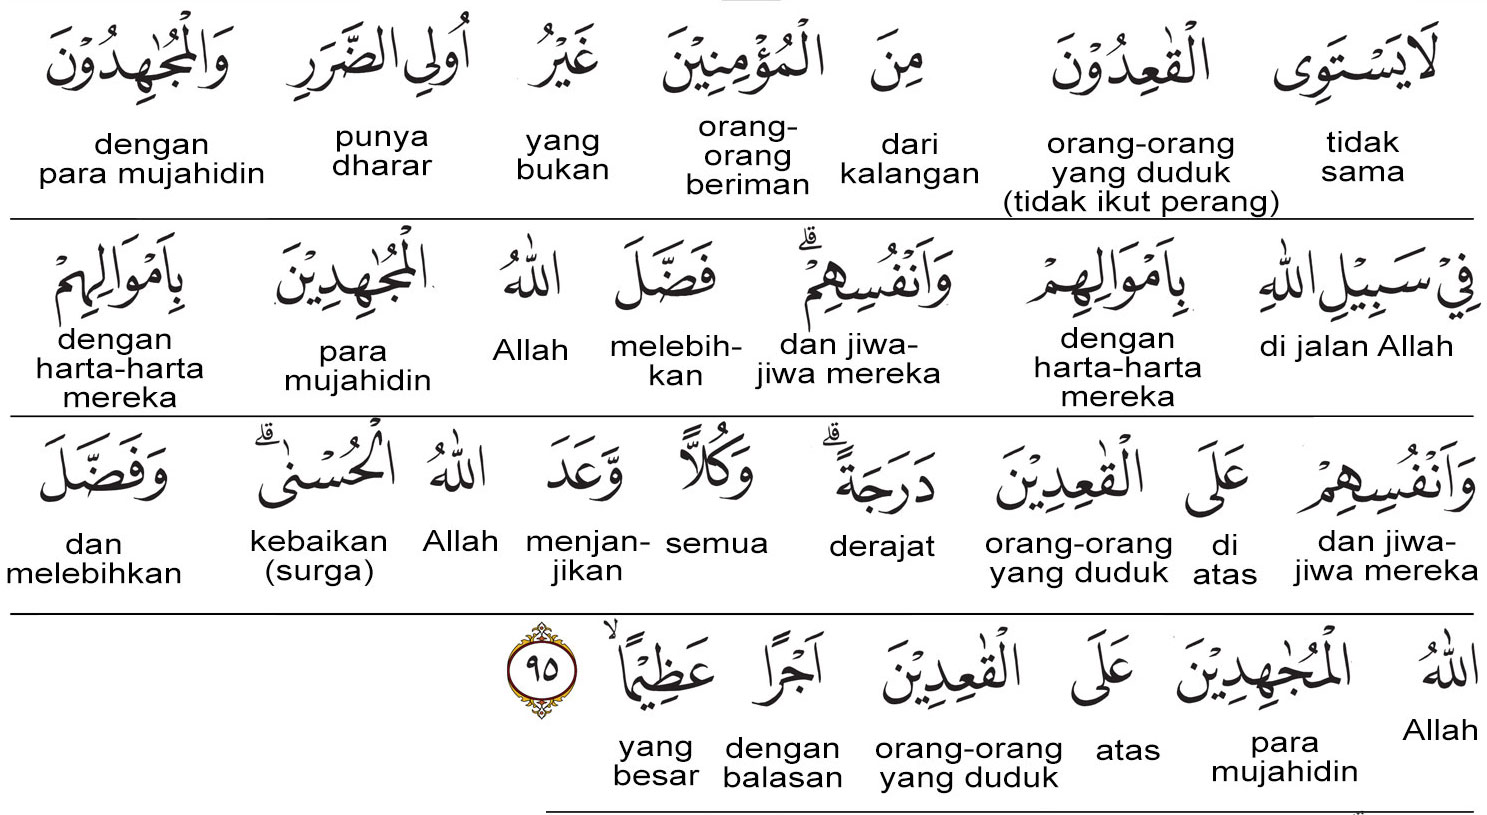 لَا يَسْتَوِى الْقٰعِدُوْنَ مِنَ الْمُؤْمِنِيْنَ غَيْرُ اُولِى الضَّرَرِ وَالْمُجٰهِدُوْنَ
tidak sama orang-orang yang duduk (tidak ikut perang) dari kalangan orang-orang beriman yang bukan punya dharar dengan para mujahidin
فِيْ سَبِيْلِ اللّٰهِ بِاَمْوَالِهِمْ وَاَنْفُسِهِمْۗ فَضَّلَ اللّٰهُ الْمُجٰهِدِيْنَ بِاَمْوَالِهِمْ
di jalan Allah dengan harta-harta mereka dan jiwa-jiwa mereka melebih-kan Allah para mujahidin dengan harta-harta mereka
وَاَنْفُسِهِمْ عَلَى الْقٰعِدِيْنَ دَرَجَةًۗ وَكُلًّا وَّعَدَ اللّٰهُ الْحُسْنٰىۗ وَفَضَّلَ
dan jiwa-jiwa mereka di atas orang-orang yang duduk derajat semua menjan-jikan Allah kebaikan (surga) dan melebihkan
اللّٰهُ الْمُجٰهِدِيْنَ عَلَى الْقٰعِدِيْنَ اَجْرًا عَظِيْمًاۙ ٩٥
Allah para mujahidin atas orang-orang yang duduk dengan balasan yang besar